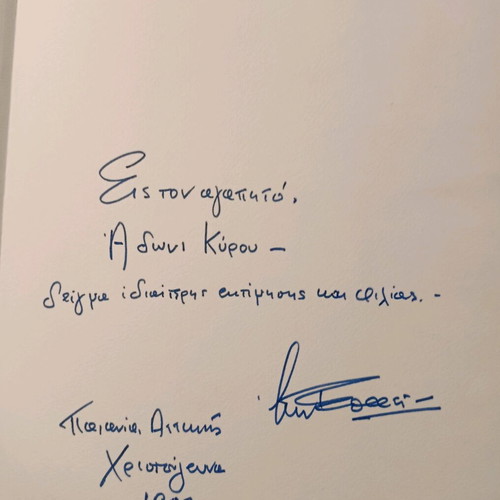 Εις τον αγαπητό,
Άδωνι Κύρου –
δείγμα ιδιαίτερης εκτίμησης και φιλίας. –
Παιανία Αττικής
Χριστούγεννα